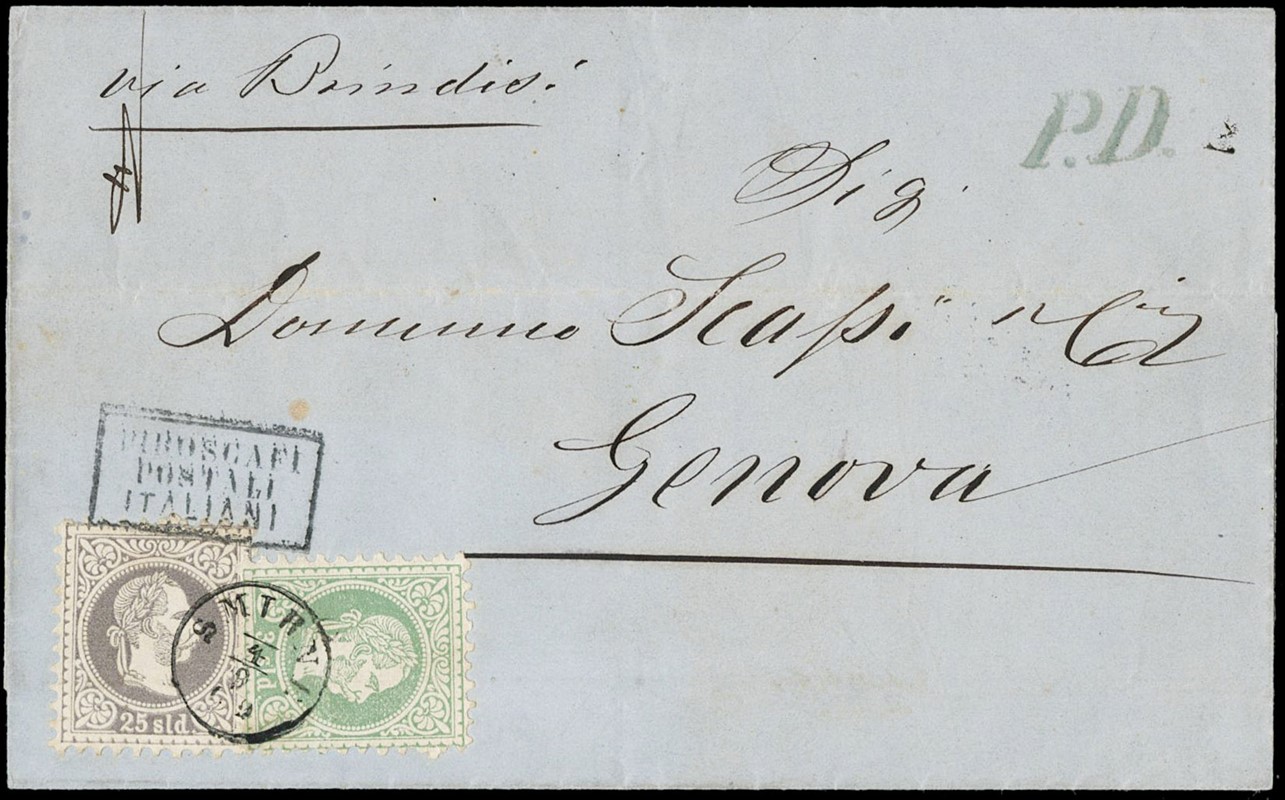 via Brindisi
P.D.
Sig.
Domenico Scassi &
Genova
PIROSCAFI
POSTALI
ITALIANI
25 sld.
3 sld
SMIRNE
4
9
69